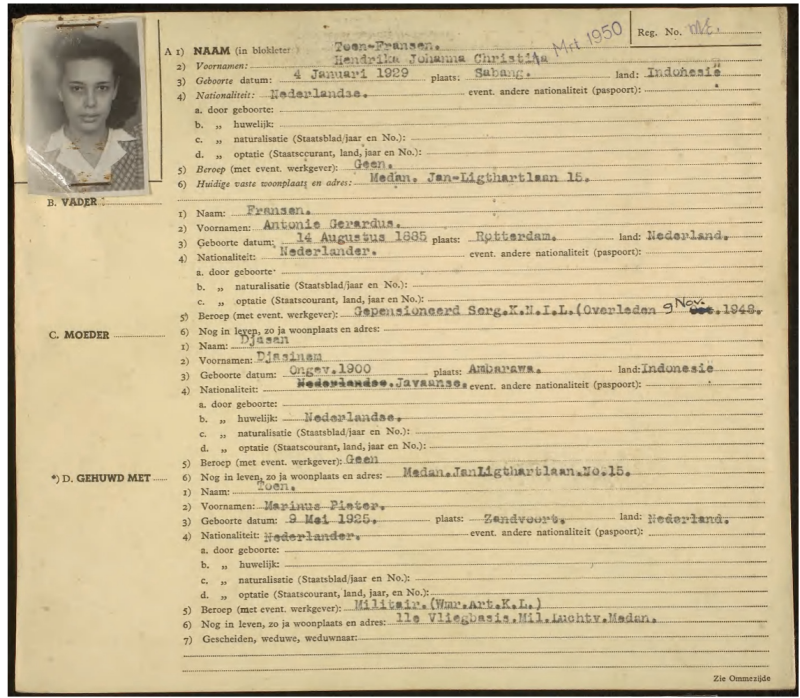 Mrt 1950
Reg. No. ME.
A 1) NAAM (in blokletter) Toen-Fransen.
2) Voornamen: Hendrika Johanna Christina
3) Geboorte datum: 4 Januari 1929 plaats: Sabang. land: Indonesië
4) Nationaliteit: Nederlandse. event. andere nationaliteit (paspoort):
a. door geboorte:
b. „ huwelijk:
c. „ naturalisatie (Staatsblad/jaar en No.):
d. „ optatie (Staatscourant, land, jaar en No.):
5) Beroep (met event. werkgever): Geen.
6) Huidige vaste woonplaats en adres: Medan. Jan-Ligthartlaan 15.
B. VADER
1) Naam: Fransen.
2) Voornamen: Antonie Gerardus.
3) Geboorte datum: 14 Augustus 1885 plaats: Rotterdam. land: Nederland.
4) Nationaliteit: Nederlander. event. andere nationaliteit (paspoort):
a. door geboorte:
b. „ naturalisatie (Staatsblad/jaar en No.):
c. „ optatie (Staatscourant, land, jaar en No.):
5) Beroep (met event. werkgever): Gepensioneerd Serg.K.N.I.L.(Overleden 9 Nov. 1948.
6) Nog in leven, zo ja woonplaats en adres:
C. MOEDER
1) Naam: Djasan
2) Voornamen: Djasinam
3) Geboorte datum: Ongev.1900 plaats: Ambarawa. land: Indonesië
4) Nationaliteit: Nederlandse. Javaanse. event. andere nationaliteit (paspoort):
a. door geboorte:
b. „ huwelijk: Nederlandse.
c. „ naturalisatie (Staatsblad/jaar en No.):
d. „ optatie (Staatscourant, land, jaar en No.):
5) Beroep (met event. werkgever): Geen
6) Nog in leven, zo ja woonplaats en adres: Medan.JanLigthartlaan.No.15.
*) D. GEHUWD MET
1) Naam: Toen.
2) Voornamen: Marinus Pieter.
3) Geboorte datum: 9 Mei 1925. plaats: Zandvoort. land: Nederland.
4) Nationaliteit: Nederlander. event. andere nationaliteit (paspoort):
a. door geboorte:
b. „ huwelijk:
c. „ naturalisatie (Staatsblad/jaar en No.):
d. „ optatie (Staatscourant, land, jaar en No.):
5) Beroep (met event. werkgever): Militair.(Wmr.Art.K.L.)
6) Nog in leven, zo ja woonplaats en adres: 11e Vliegbasis.Mil.Luchtv.Medan.
7) Gescheiden, weduwe, weduwnaar:
Zie Ommezijde